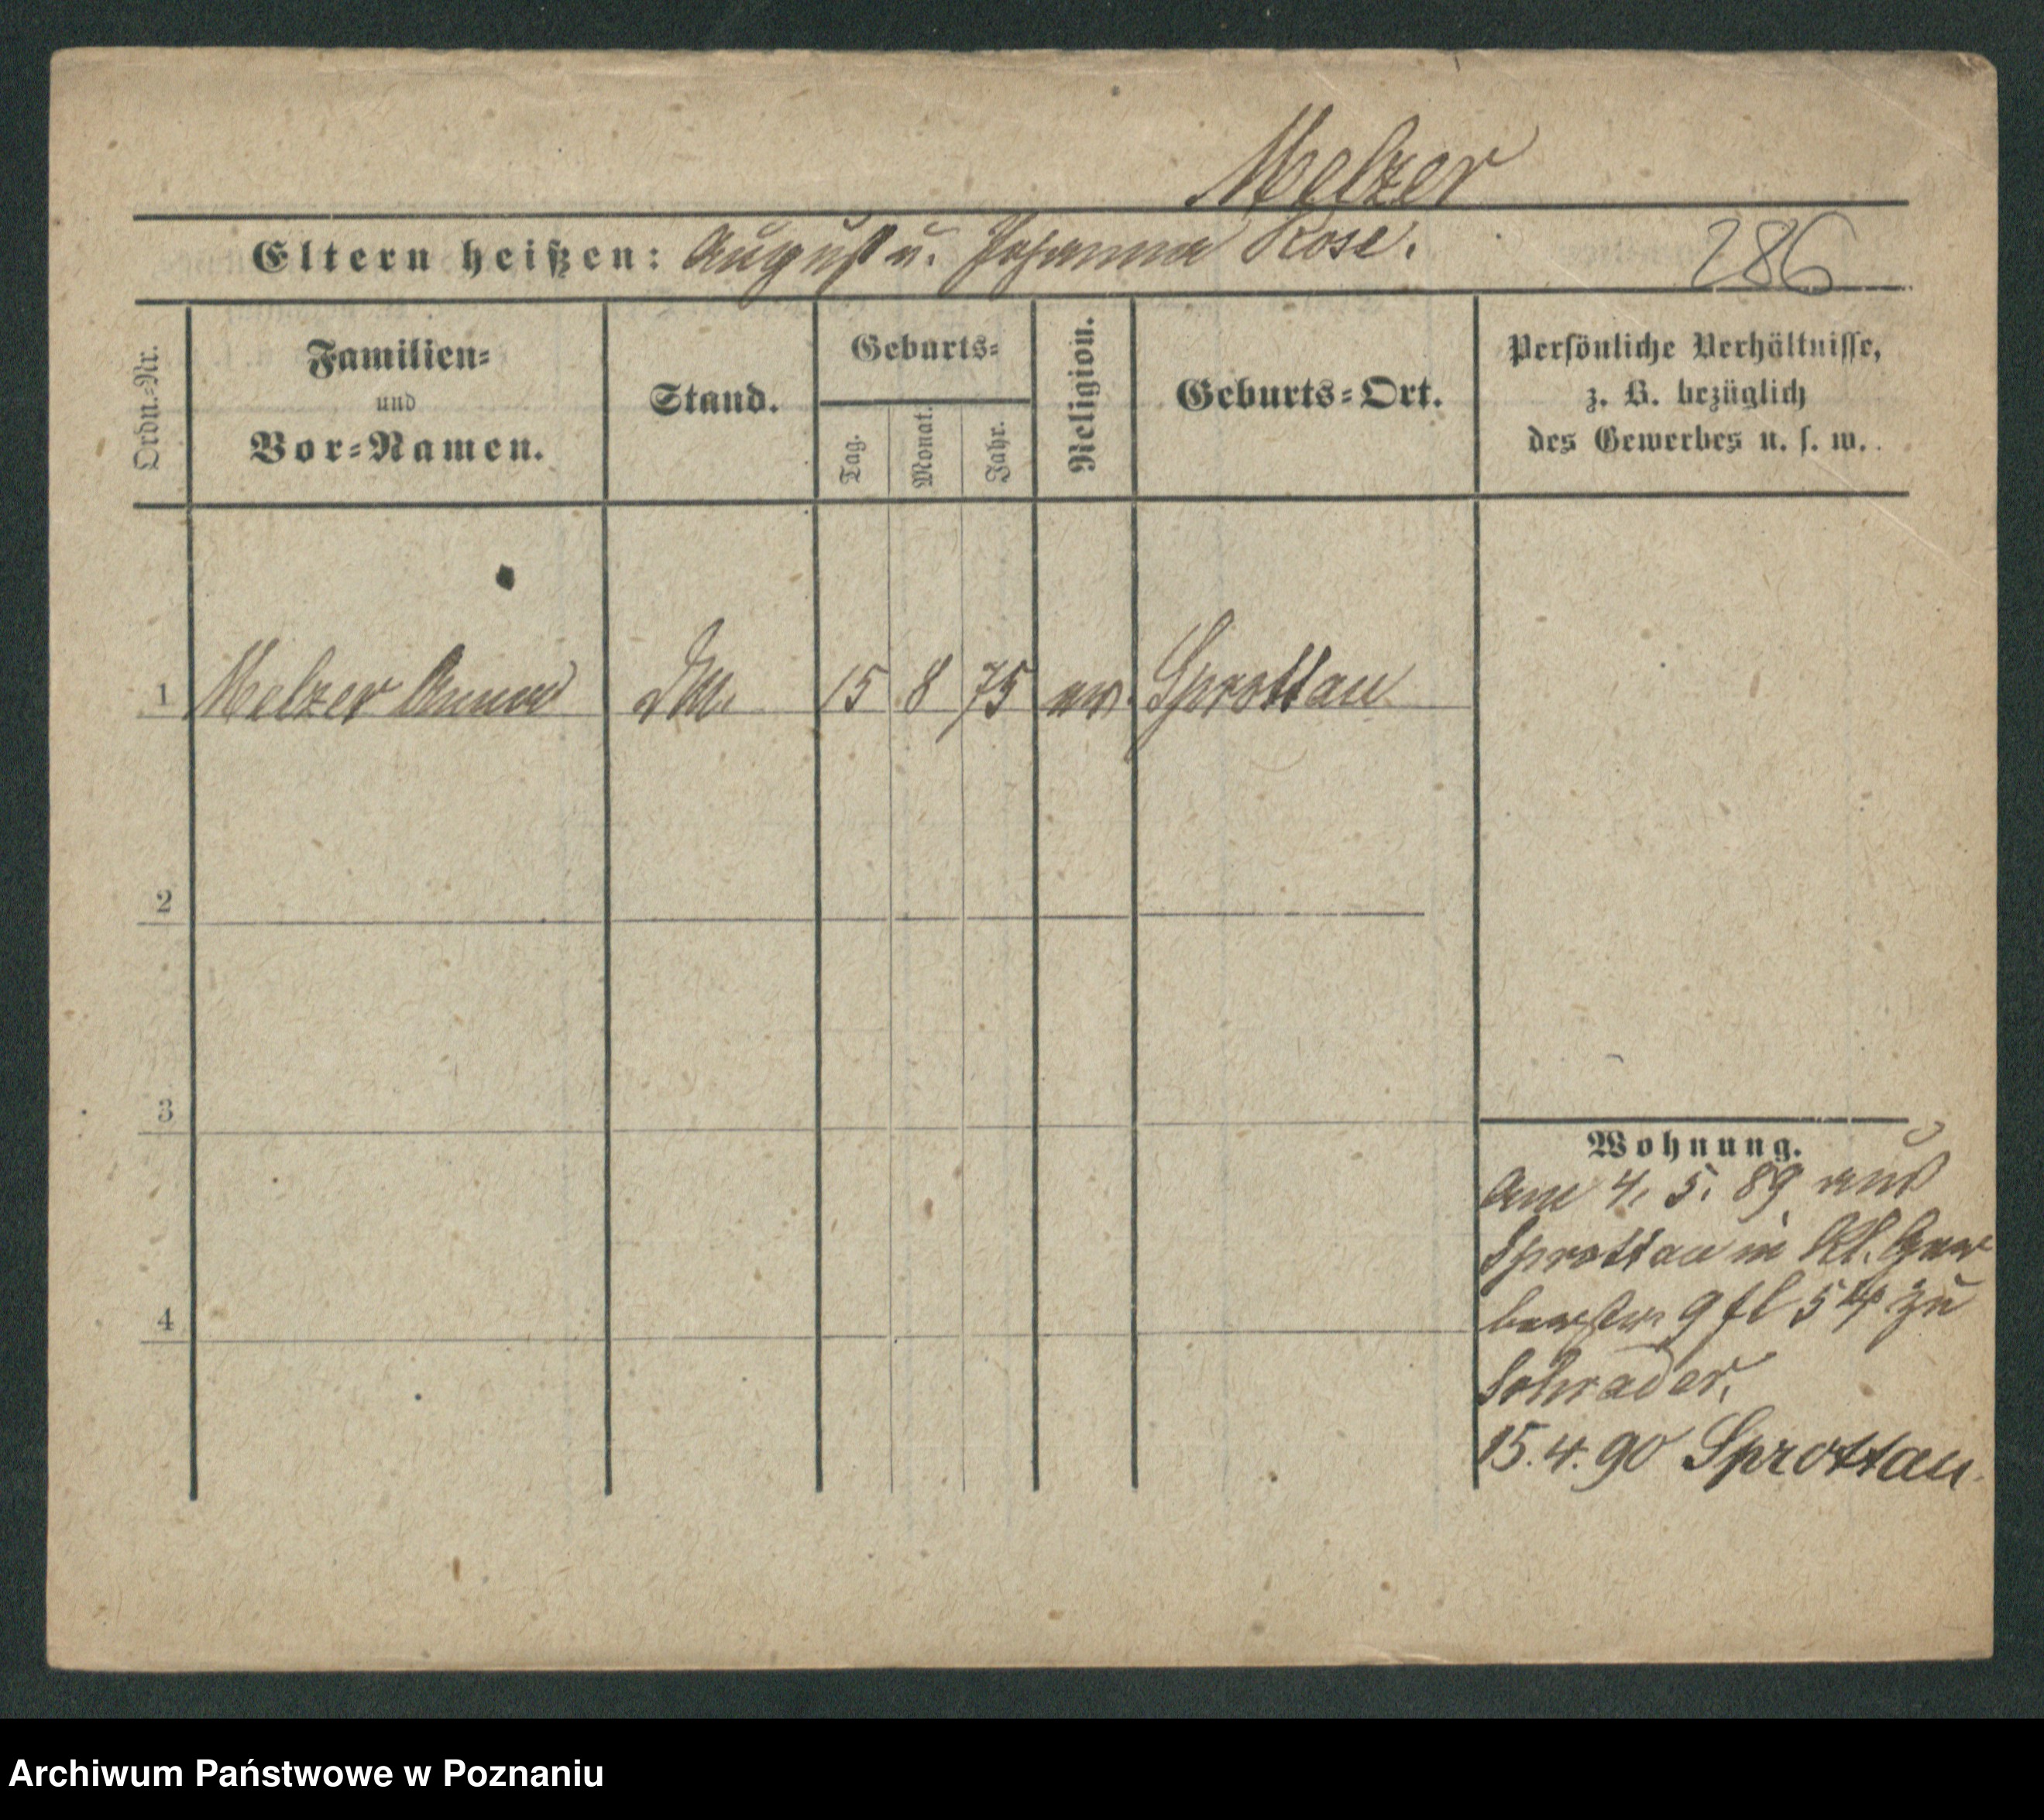 Melzer
Eltern heißen: August u. Johanna Rose.
286
Ordn.-Nr.
Familien-
und
Vor-Namen.
Stand.
Geburts-
Tag.
Monat.
Jahr.
Religion.
Geburts-Ort.
Persönliche Verhältnisse,
z. B. bezüglich
des Gewerbes u. s. w.
1 Melzer Anna 15 8 75 ev. Sprottau
2
3
4
Wohnung.
Am 4. 5. 89 aus
Sprottau in Kl. Ger
berstr. 9 zu
Schrader.
15. 4. 90 Sprottau.
Archiwum Państwowe w Poznaniu